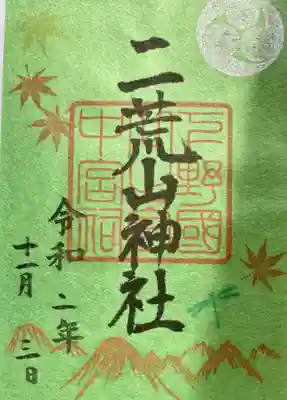 二荒山神社
令和二年
十一月三日
下野國
中宮祠